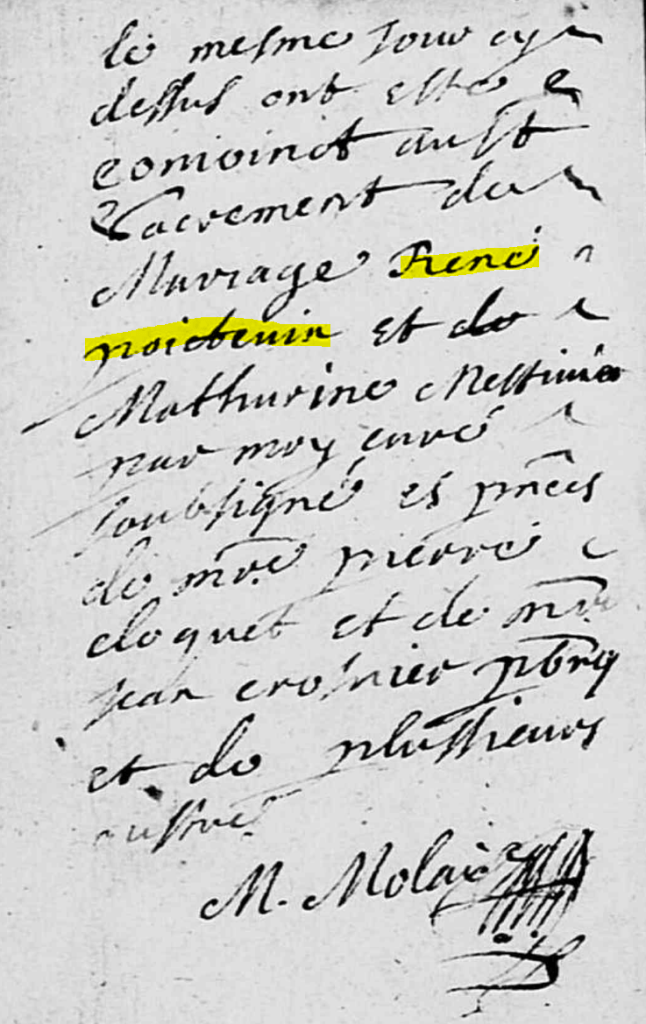 le mesme Jour cy
dessus ont esté
conioinct au St
Sacrement du
Mariage René
poictevin et de
Mathurine Mestivier
par moy curé
soubsigné es pnces
de mre pierre
cloquet et de mre
jean crosnier pbres
et de plussieurs
austre
M. Molai